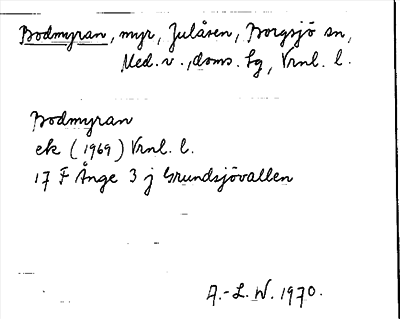 Bodmyran, myr, Julåsen, Borgsjö sn,
Med. v., doms. sg, Vrnl. l.
Bodmyran
ek (1969) Vrnl. l.
17 F Ånge 3 j Grundsjövallen
A.-L. W. 1970.